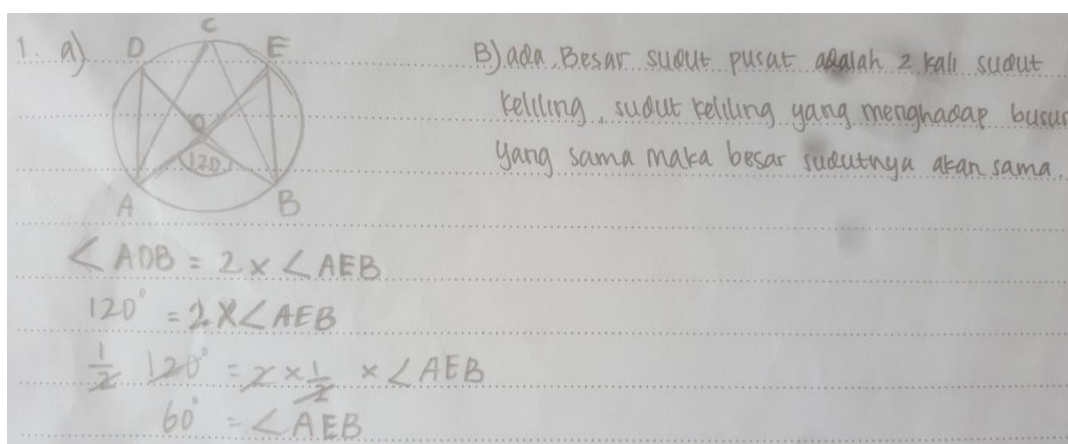 1. a)
C
D E
O
120
A B
B) ada, Besar sudut pusat adalah 2 kali sudut
keliling, sudut keliling yang menghadap busur
yang sama maka besar sudutnya akan sama.
∠AOB = 2 × ∠AEB
120° = 2 × ∠AEB
1/2 120° = 2 × 1/2 × ∠AEB
60° = ∠AEB